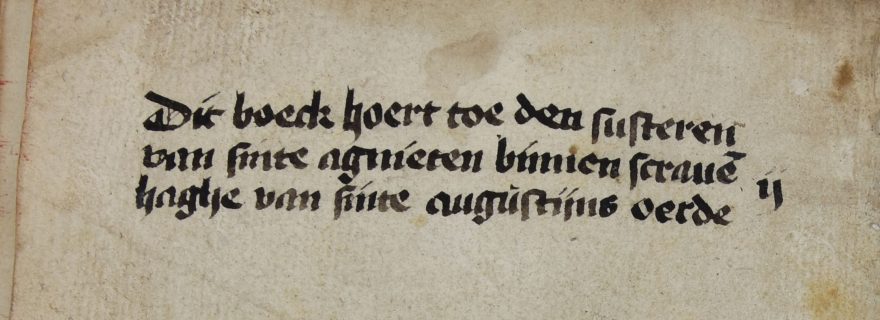 Dit boeck hoert toe den susteren
van sinte agnieten binnen scrauē
haghe van sinte augustijns oerde ij